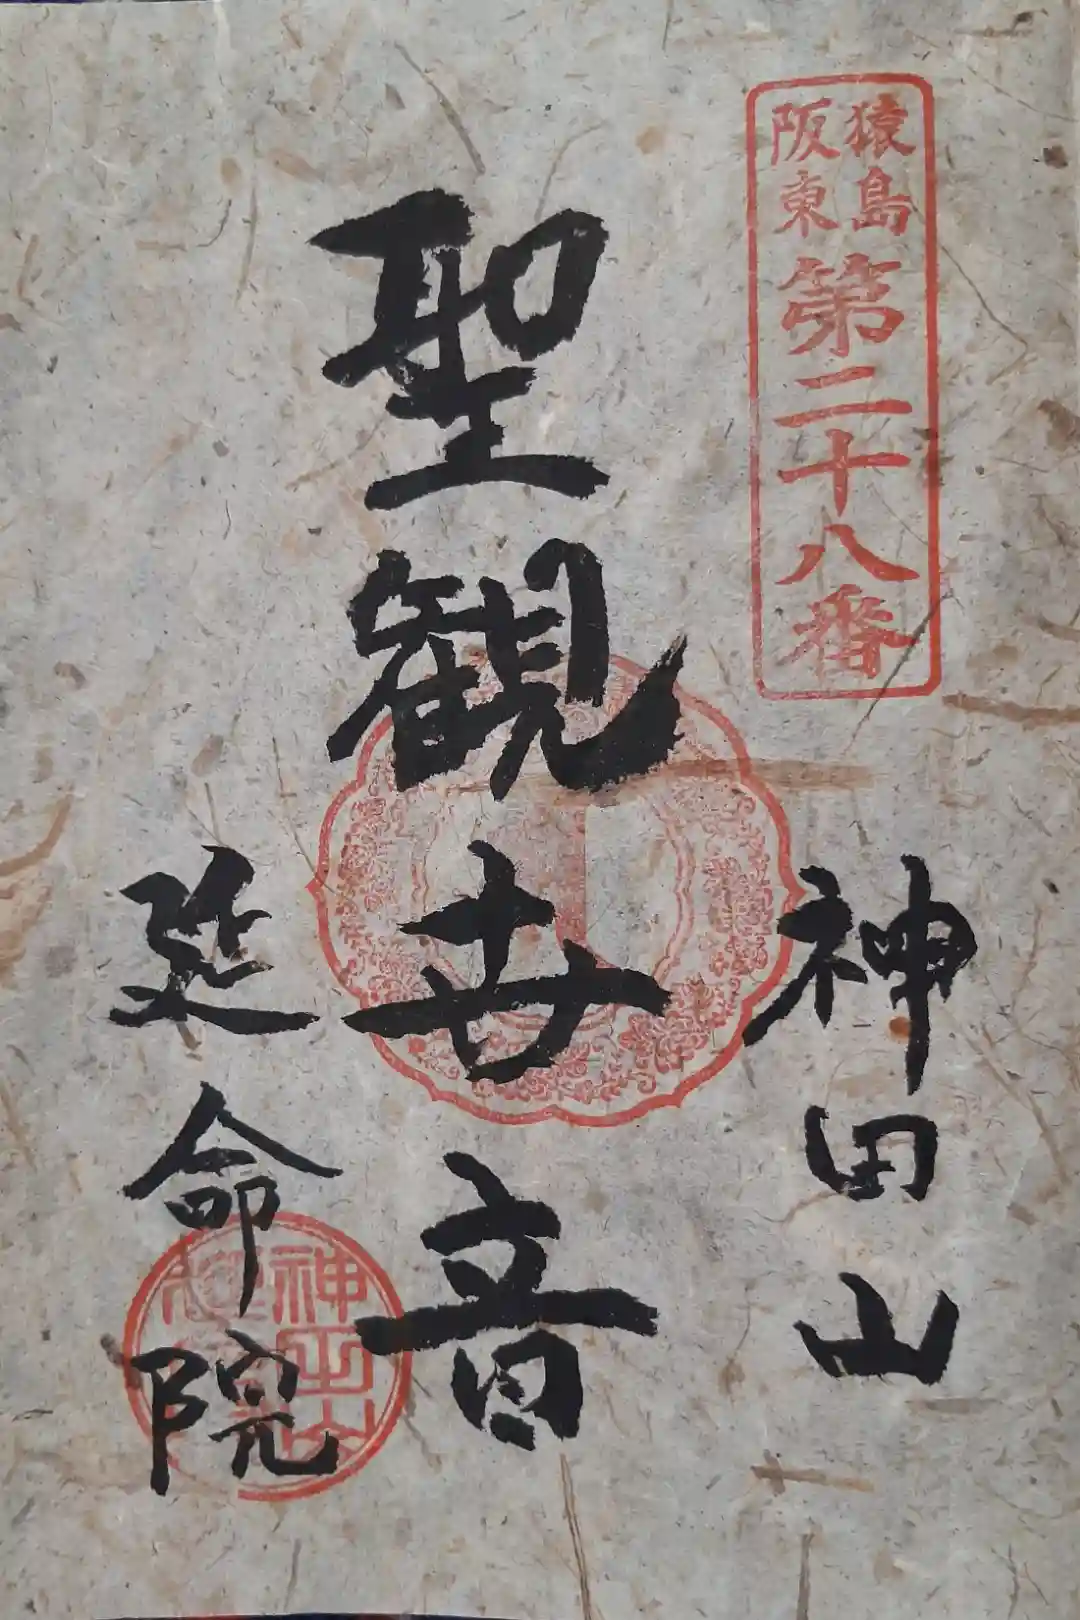 猿島
阪東
第二十八番
神田山
聖観世音
延命院
神田山